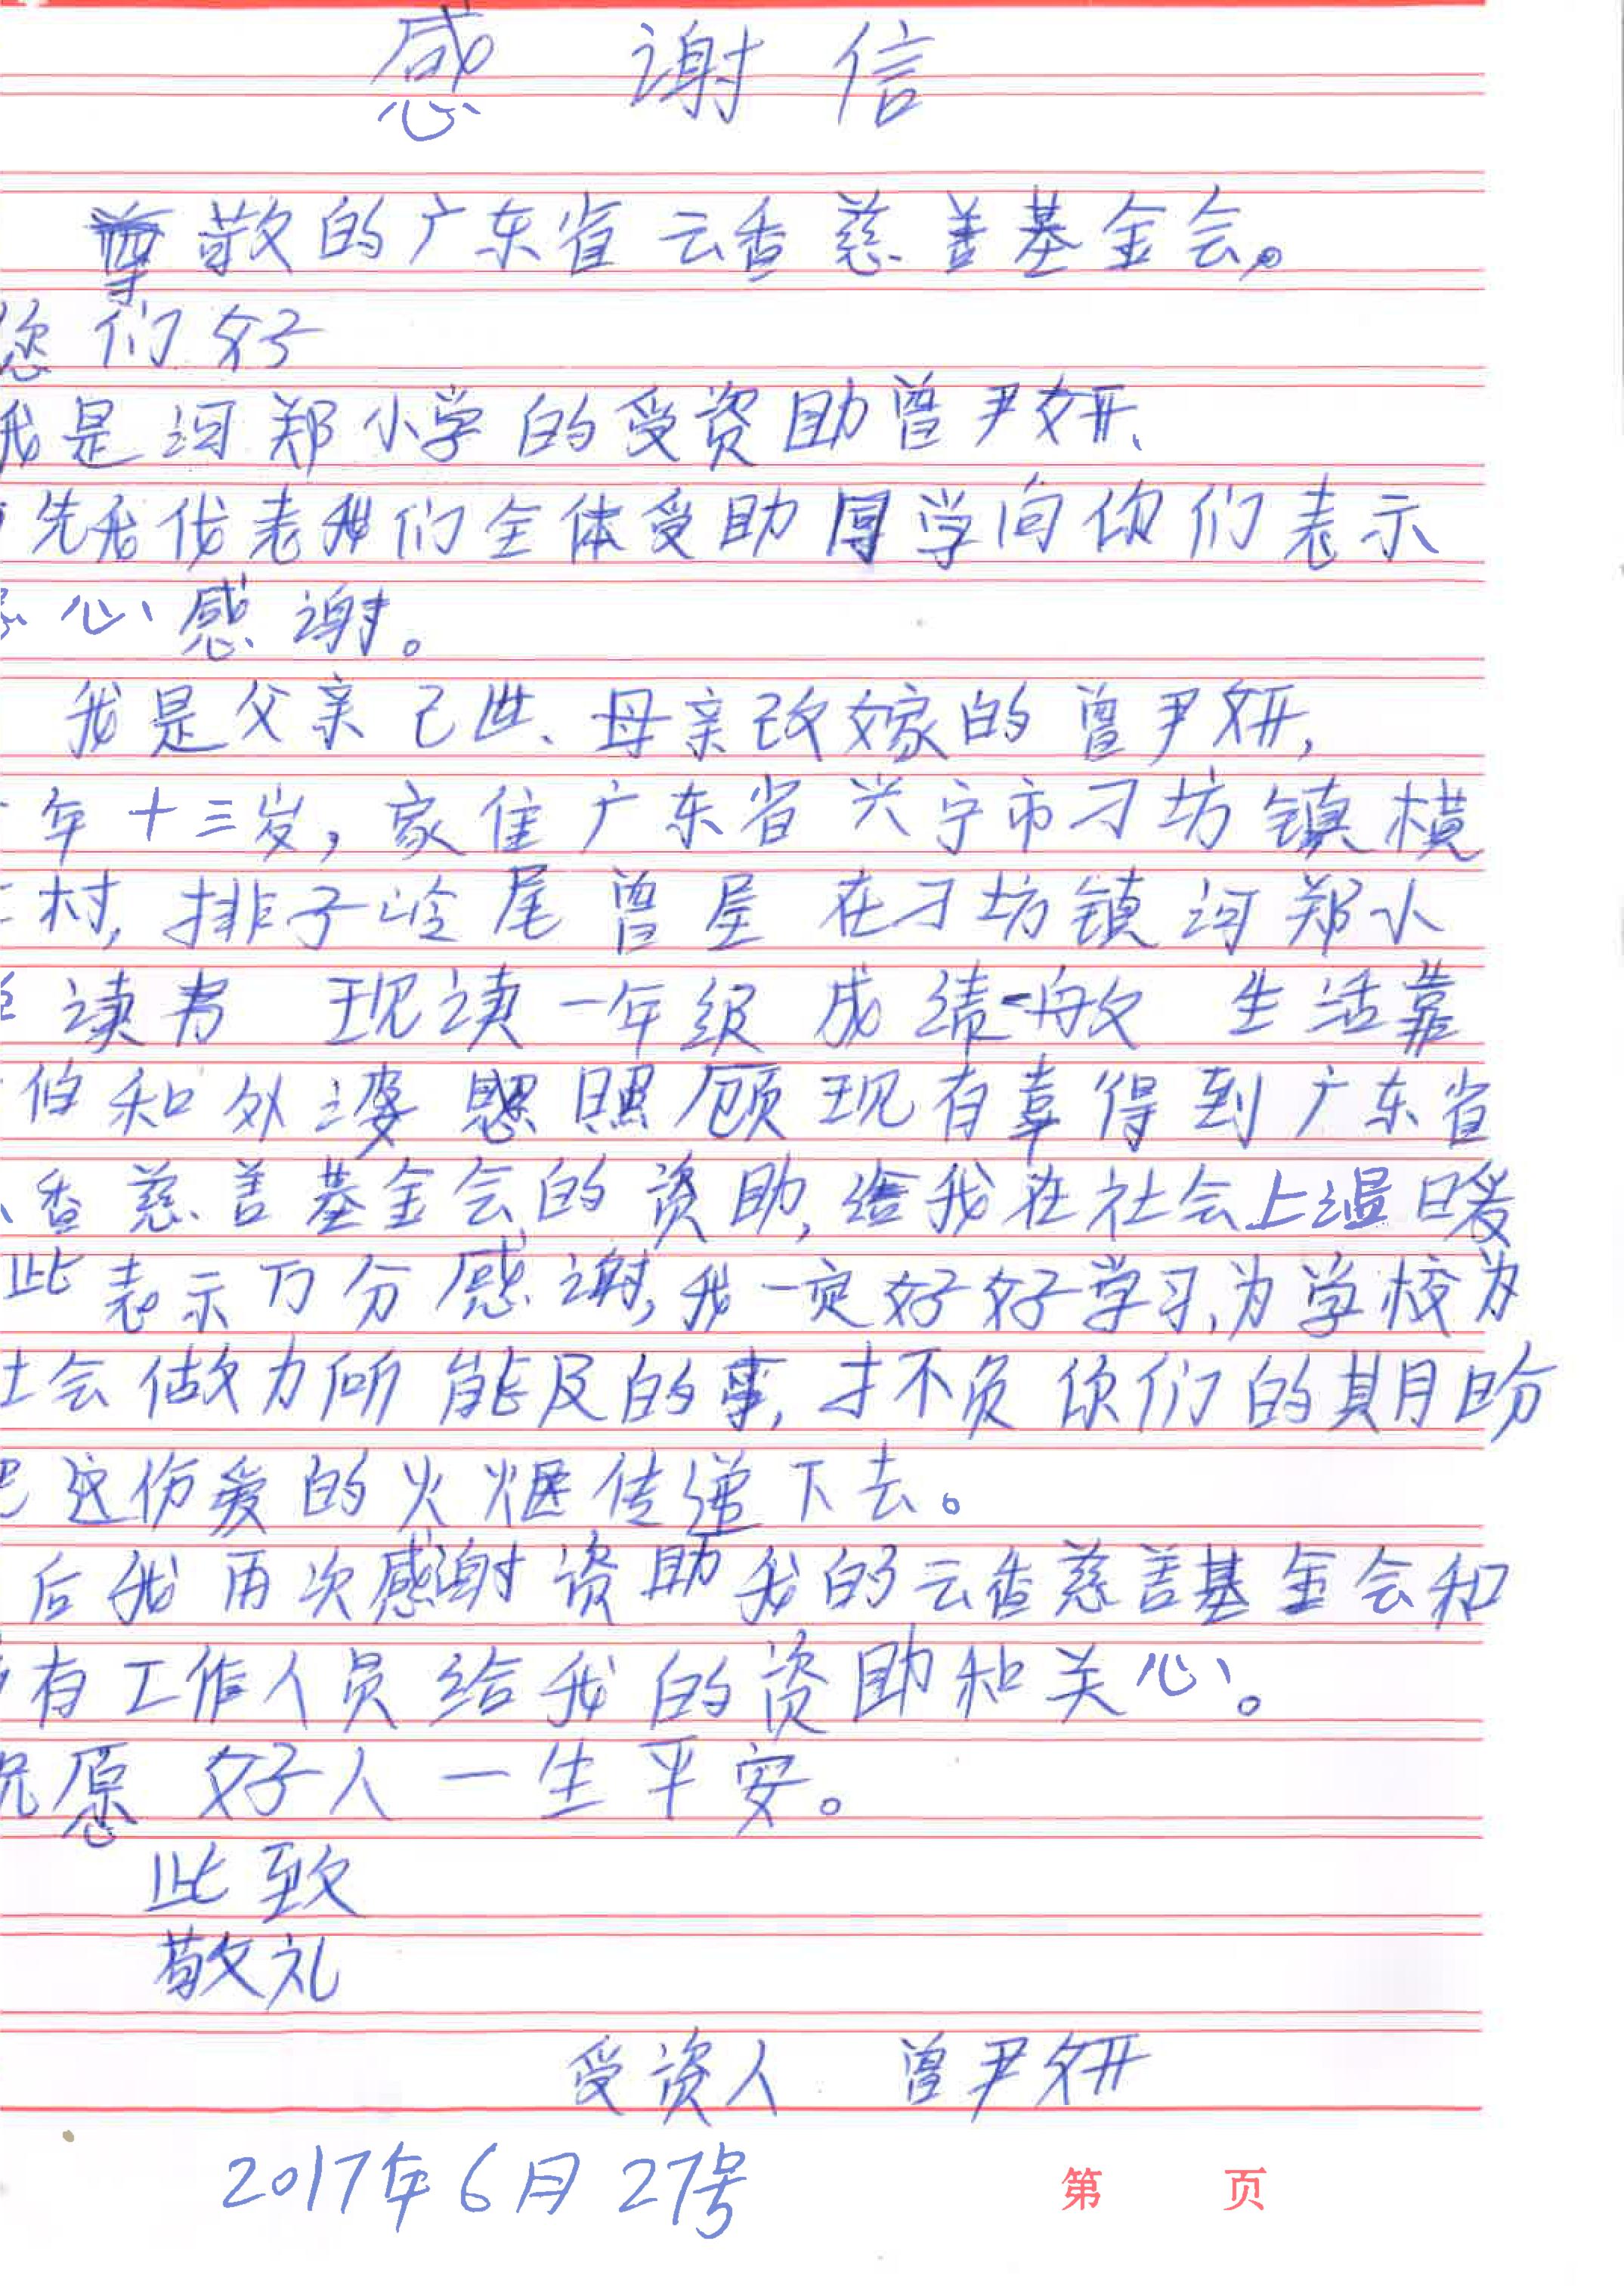 感谢信
尊敬的广东省云香慈善基金会。
您们好
我是河郑小学的受资助曾尹妍、
先我伐表我们全体受助同学向你们表示
心感谢。
我是父亲己世、母亲改嫁的曾尹妍,
年十三岁,家住广东省兴宁市刁坊镇横
村,排子岭尾曾屋 在刁坊镇河郑小
读书 现读一年级 成绩一般 生活靠
伯和外婆 照顾现有幸得到广东省
香慈善基金会的资助,给我在社会上温暖
此表示万分感谢,我一定好好学习,为学校为
社会做力所能及的事,才不负你们的期盼
把这份爱的火烟传递下去。
后我再次感谢资助我的云香慈善基金会和
有工作人员给我的资助和关心。
祝愿好人一生平安。
此致
敬礼
受资人 曾尹妍
2017年6月27号
第 页